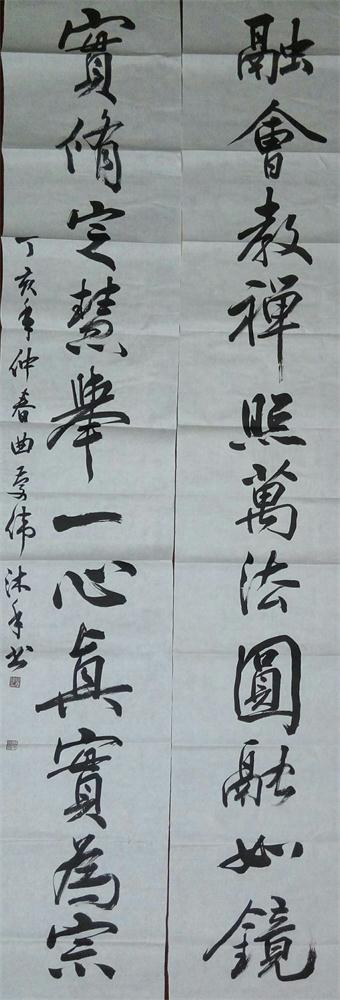 融會教禅照萬法圓融如鏡
實脩定慧舉一心真實為宗
丁亥年仲春曲彦伟沐手书